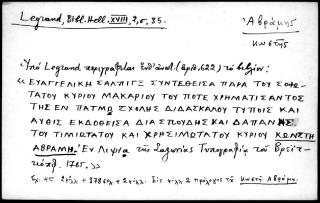 Legrand, Bibl. Hell. XVIII, 2, σ, 85.
Ἀβράμης
Κωστῆς
Ὑπὸ Legrand περιγράφεται ἐνθ' ἀνωτ. (ἀριθ. 622) τὸ βιβλίον:
« ΕΥΑΓΓΕΛΙΚΗ ΣΑΛΠΙΓΞ ΣΥΝΤΕΘΕΙΣΑ ΠΑΡΑ ΤΟΥ ΣΟΦΩ-
ΤΑΤΟΥ ΚΥΡΙΟΥ ΜΑΚΑΡΙΟΥ ΤΟΥ ΠΟΤΕ ΧΡΗΜΑΤΙΣΑΝΤΟΣ
ΤΗΣ ΕΝ ΠΑΤΜῼ ΣΧΟΛΗΣ ΔΙΔΑΣΚΑΛΟΥ ΤΥΠΟΙΣ ΚΑΙ
ΑΥΘΙΣ ΕΚΔΟΘΕΙΣΑ ΔΙΑ ΣΠΟΥΔΗΣ ΚΑΙ ΔΑΠΑΝΗΣ
ΤΟΥ ΤΙΜΙΩΤΑΤΟΥ ΚΑΙ ΧΡΗΣΙΜΩΤΑΤΟΥ ΚΥΡΙΟΥ ΚΩΝΣΤΗ
ΑΒΡΑΜΗ. Ἐν Λειψίᾳ τῆς Σαξωνίας Τυπογραφίᾳ τοῦ Βρεϊτ-
κόπφ. 1765. »
Σχ. 4ον 2 φ. λλ + 378 σελ + 2 φ. λλ.